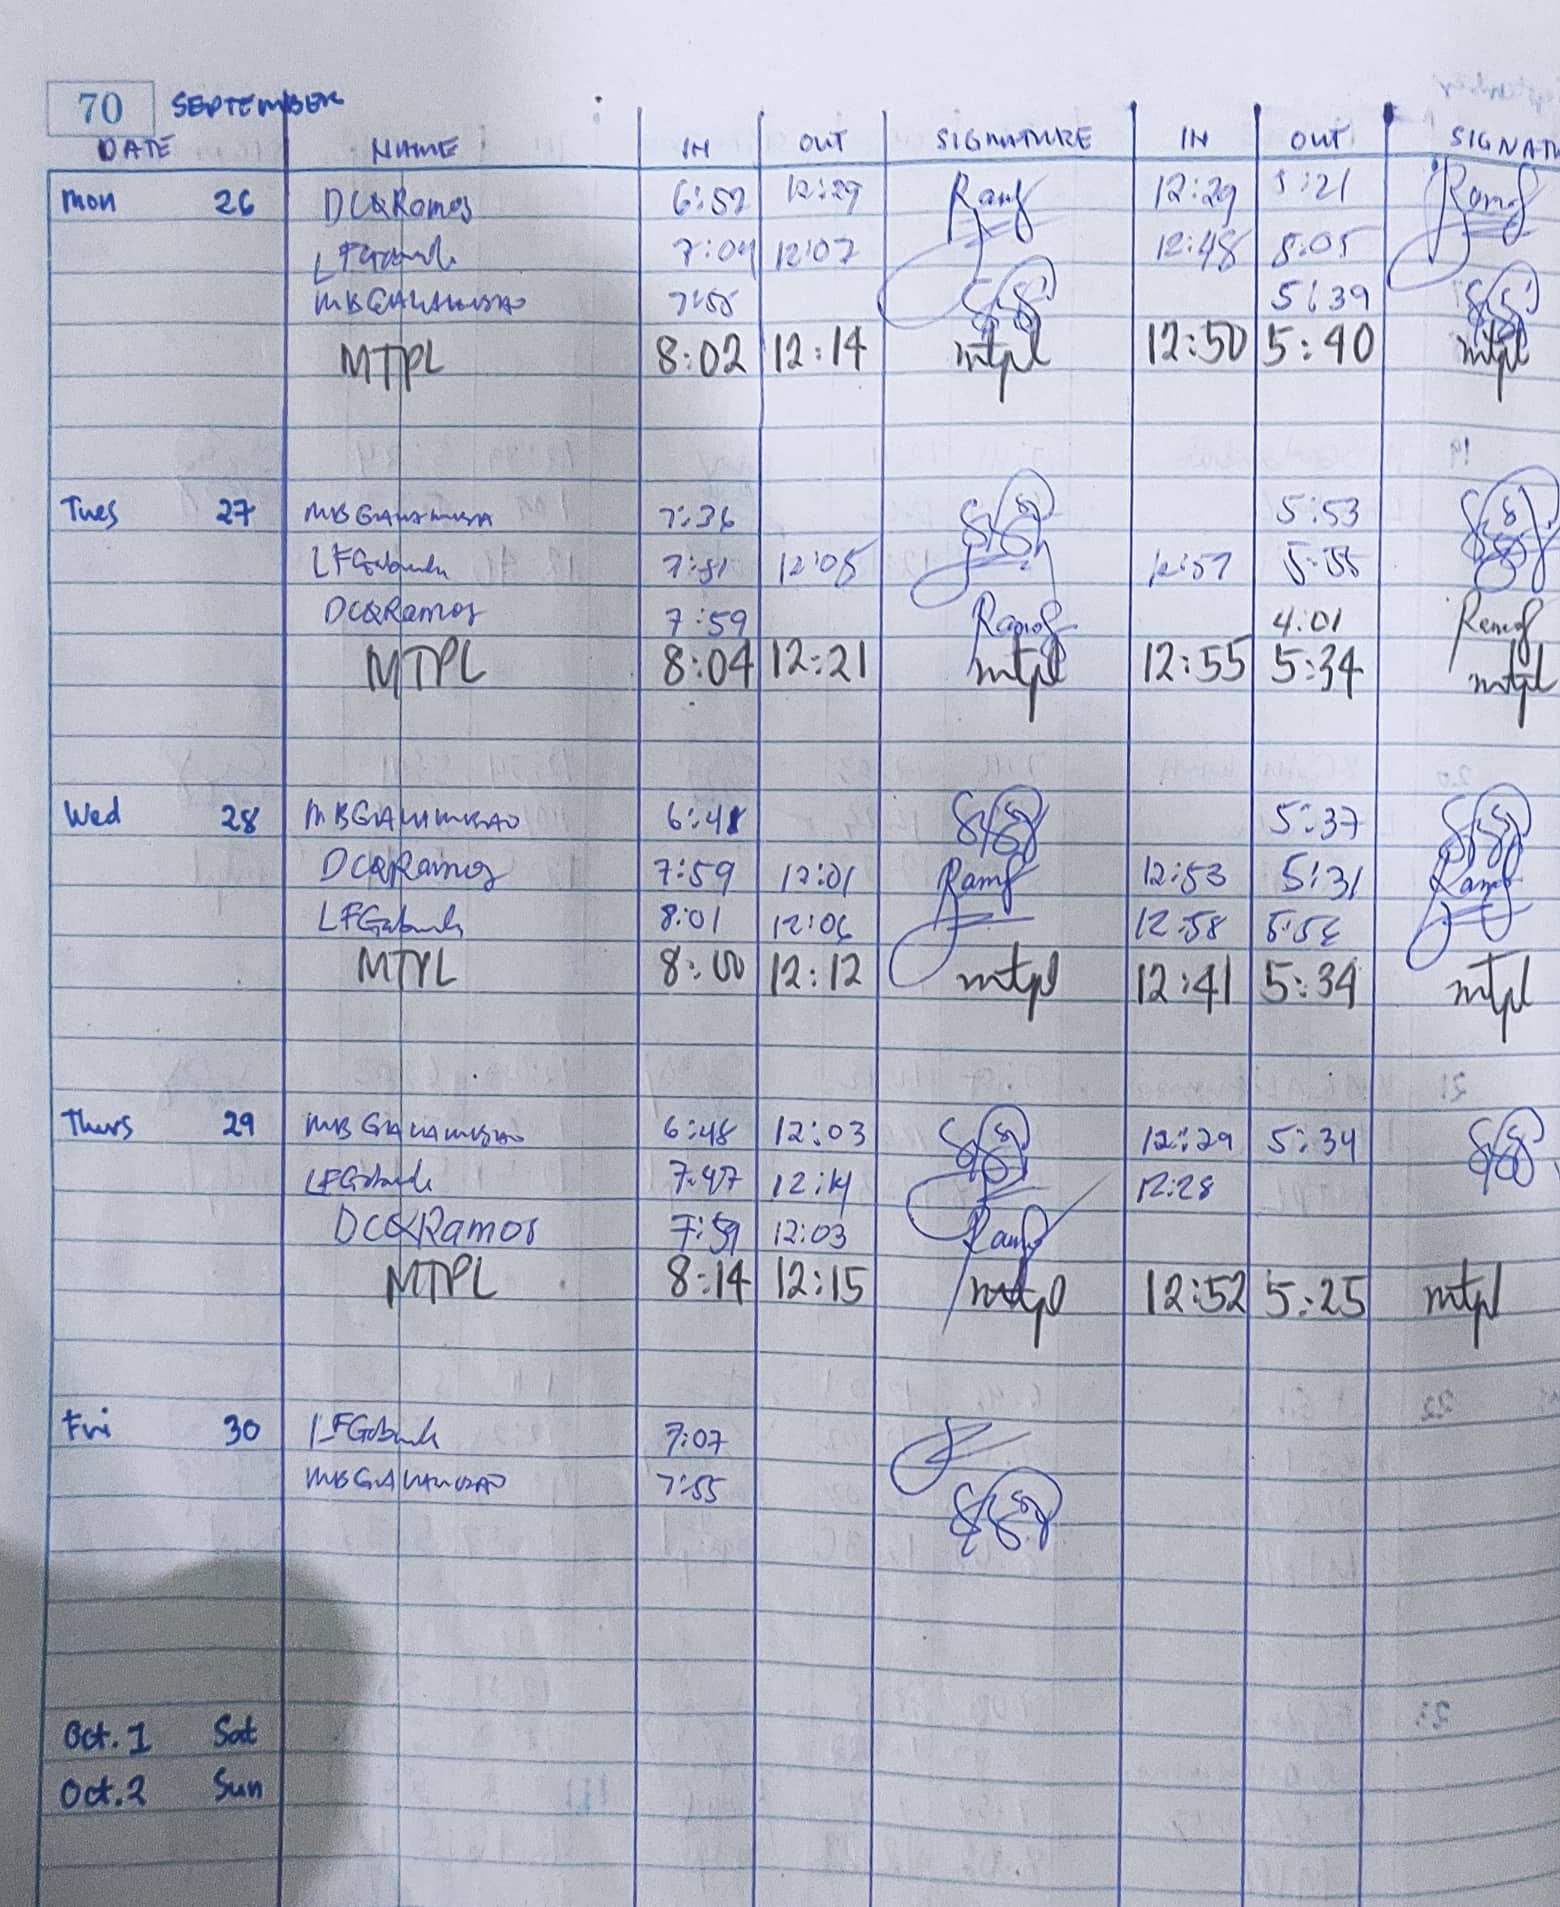 70 SEPTEMBER
DATE NAME IN OUT SIGNATURE IN OUT SIGNAT
Mon 26 DCQRamos 6:52 12:29 Ramos 12:29 5:21 Ramos
7:04 12:07 12:48 5:05
7:55 5:39
MTPL 8:02 12:14 mtpl 12:50 5:40 mtpl
Tues 27 7:36 5:53
7:51 12:05 12:57 5:55
DCQRamos 7:59 Ramos 4:01 Ramos
MTPL 8:04 12:21 mtpl 12:55 5:34 mtpl
Wed 28 6:48 5:37
DCQRamos 7:59 12:01 Ramos 12:53 5:31 Ramos
8:01 12:06 12:58
MTPL 8:00 12:12 mtpl 12:41 5:34 mtpl
Thurs 29 6:48 12:03 12:29 5:34
7:47 12:14 12:28
DCQRamos 7:59 12:03 Ramos
MTPL 8:14 12:15 mtpl 12:52 5:25 mtpl
Fri 30 7:07
7:55
Oct. 1 Sat
Oct. 2 Sun